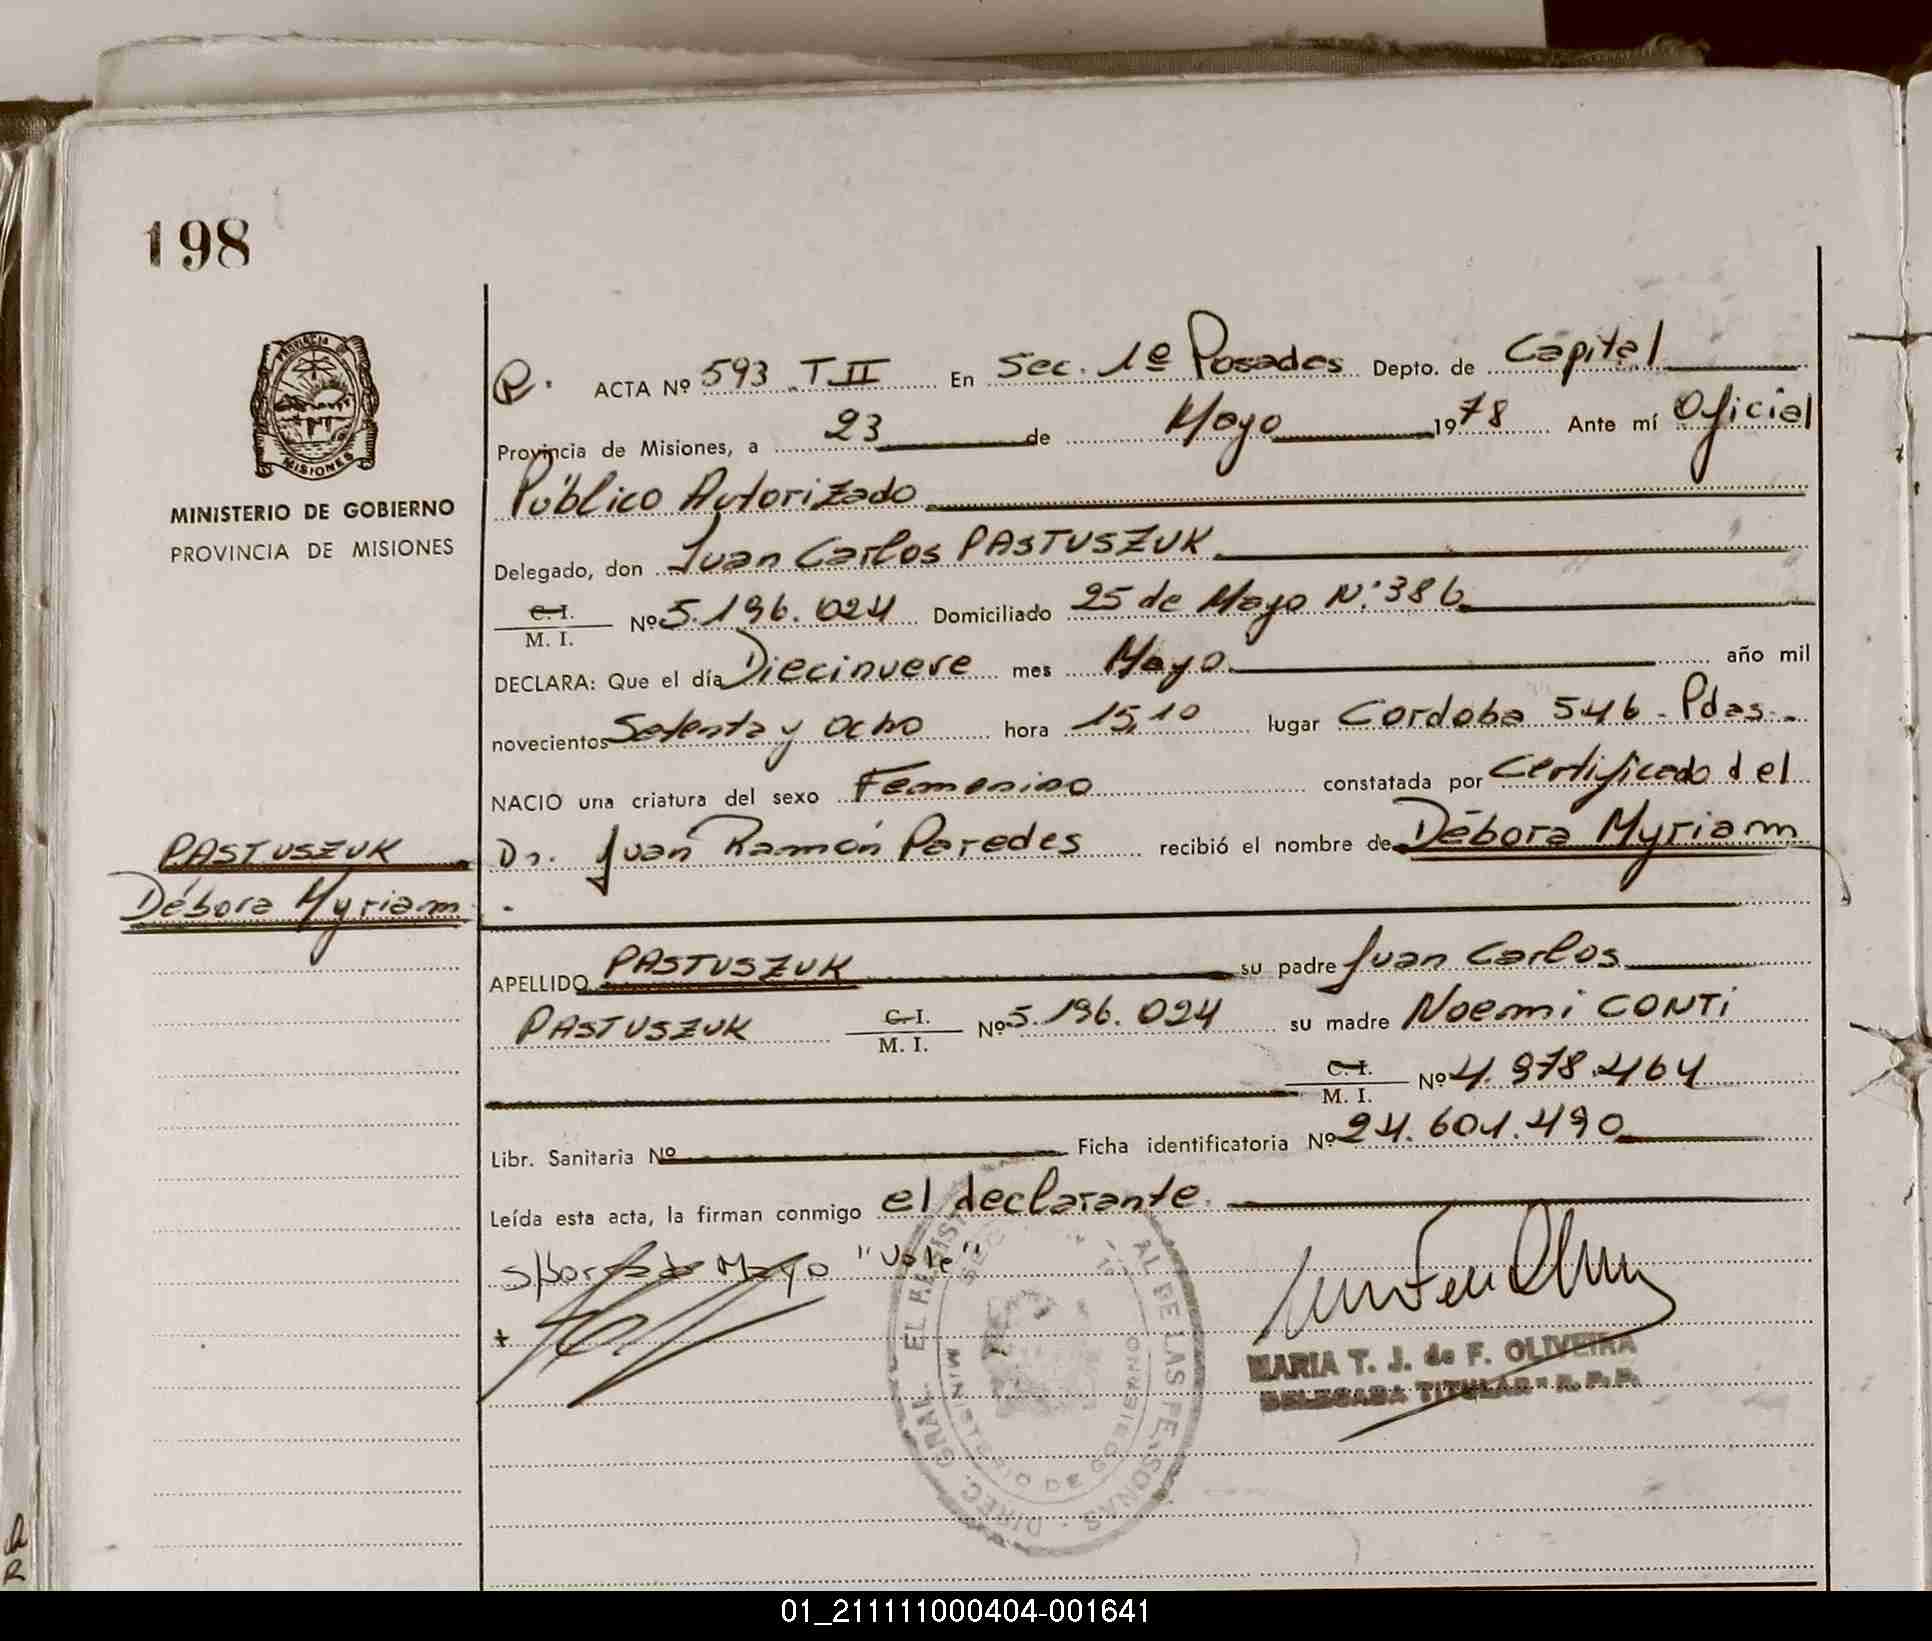 198
PROVINCIA DE
MISIONES
MINISTERIO DE GOBIERNO
PROVINCIA DE MISIONES
PASTUSZUK
Débora Myriam
R. ACTA Nº 593 T II En Sec. 1º Posadas Depto. de Capital
Provincia de Misiones, a 23 de Mayo 1978 Ante mí Oficial
Público Autorizado
Delegado, don Juan Carlos PASTUSZUK
C. I. / M. I. Nº 5.196.024 Domiciliado 25 de Mayo Nº 386
DECLARA: Que el día Diecinueve mes Mayo año mil
novecientos Setenta y Ocho hora 15,10 lugar Cordoba 546 - Pdas.-
NACIO una criatura del sexo Femenino constatada por Certificado del
Dr. Juan Ramón Paredes recibió el nombre de Débora Myriam
APELLIDO PASTUSZUK su padre Juan Carlos
PASTUSZUK C. I. / M. I. Nº 5.196.024 su madre Noemi CONTI
C. I. / M. I. Nº 4.978.464
Libr. Sanitaria Nº Ficha identificatoria Nº 24.601.490
Leída esta acta, la firman conmigo el declarante.
S/borrado Mayo "Vale"
MARIA T. J. de F. OLIVEIRA
DELEGADA TITULAR - R. P. P.
MINISTERIO DE GOBIERNO
01_211111000404-001641